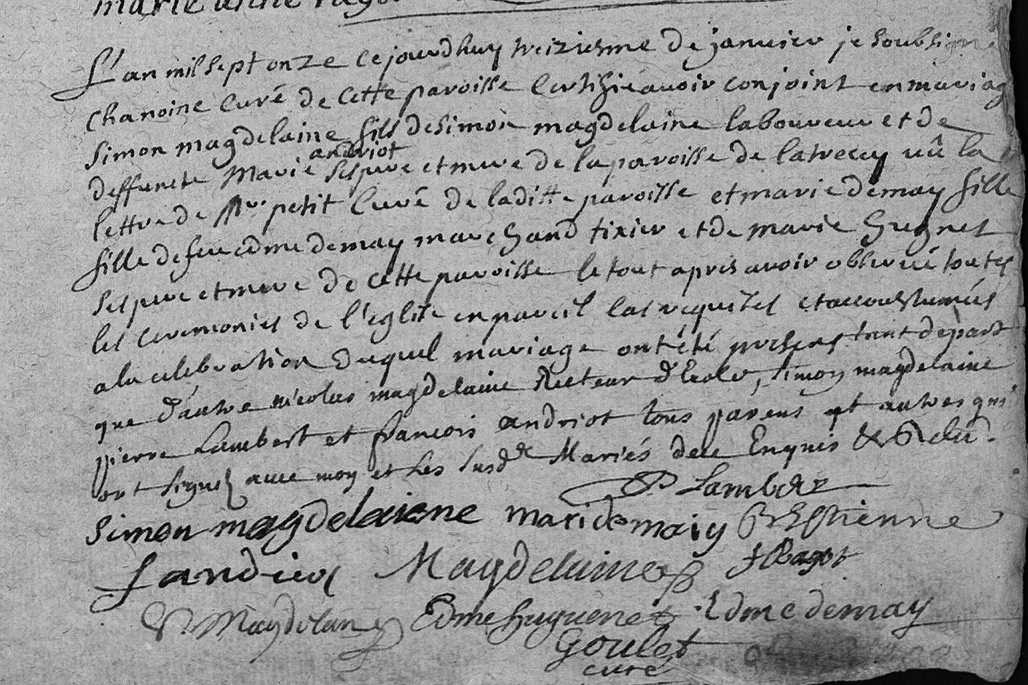 marie anne
L'an mil sept onze cejourdhuy treiziesme de janvier je soubsigné
chanoine curé de cette paroisse certifie avoir conjoint en mariag
simon magdelaine fils de simon magdelaine laboureur et de
deffuncte Marie andriot ses pere et mere de la paroisse de latrecey vû la
lettre de Mr petit curé de laditte paroisse et marie demay fille
fille de feu edme demay marchand tixier et de marie
ses pere et mere de cette paroisse le tout apres avoir observé toutes
les ceremonies de l'eglise en pareil cas requises et accoustumées
a la celebration duquel mariage ont été presens tant depart
que d'autre nicolas magdelaine Recteur d'Ecole, simon magdelaine
pierre Lambert et francois andriot tous parens et autres qui
ont signez avec moy et les susd. Mariés de ce Enquis
P Lambert
simon magdelaiene mari demaiy Estienne
f andriot Magdelaine Ragot
Magdelaine Edme huguenet Edme demay
Goulet
curé